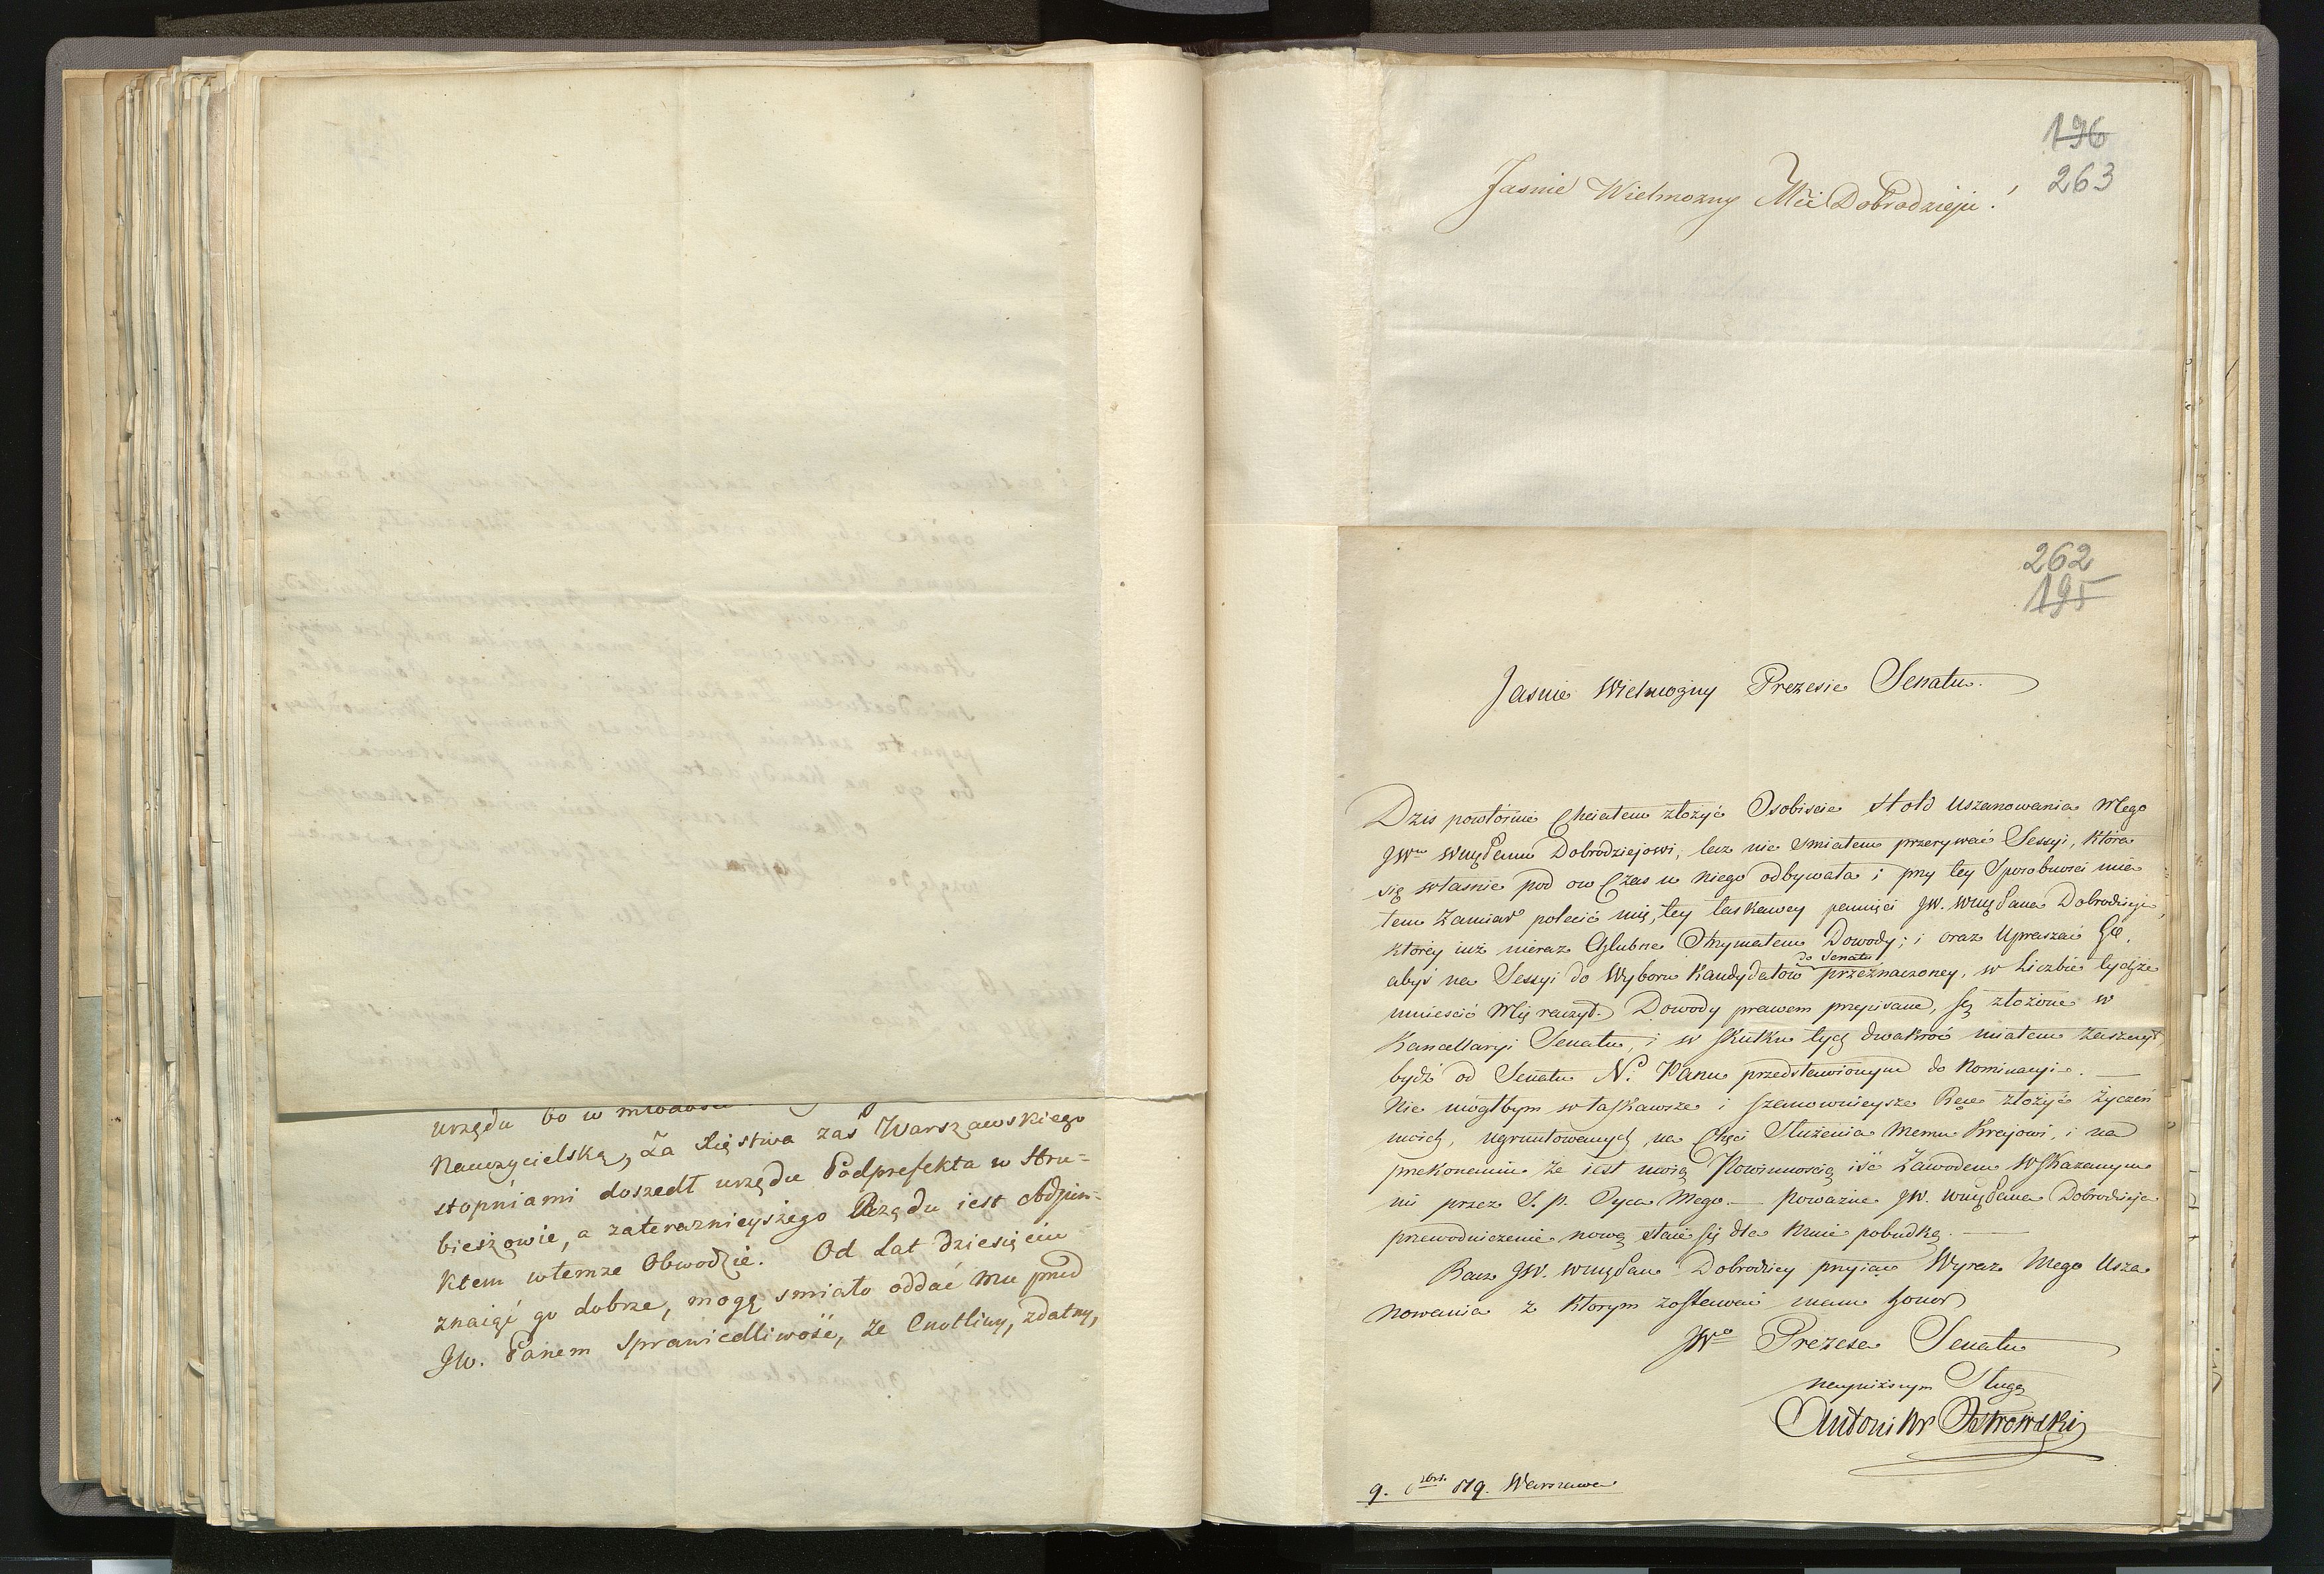 urzędu bo w młodości
Nauczycielską, Za Xięstwa zaś Warszawskiego
stopniami doszedł urzędu Podprefekta w Hru=
bieszowie, a zaterazniejszego Rządu iest Adjun=
ktem wtemże Obwodzie. Od Lat dziesięciu
znaiąć go dobrze, mogę smiało oddać mu przed
JW. Panem Sprawiedliwość, że Cnotliwy, zdatny,
196
263
Jasnie Wielmozny Mći Dobrodzieju!
262
195
Jasnie Wielmożny Prezesie Senatu.
Dzis powtórnie Chciałem złożyć Osobiscie Hołd Uszanowania Mego
JWu Dobrodziejowi, lecz nie smiałem przerywać Sessyi, która
się własnie pod ow Czas u niego odbywała; przy tey Sposobnosci mia
łem Zamiar polecić mię, tey łaskawey pamięci JW. Dobrodzieja,
którey iuż nieraz Chlubne Otrzymałem Dowody; i oraz Upraszać Go,
abyś na Sessyi do Wyboru Kandydatów do Senatu przeznaczoney, w Liczbie tychże
umiescić Mię raczył. Dowody prawem przepisane, są złożone w
Kancellaryi Senatu, i w skutku tych dwakroć miałem zaszczyt
bydź od Senatu N. Panu przedstawionym do Nominacyi. —
Nie mógłbym w łaskawsze i szanownieysze Ręce złożyć życzeń
moich, ugruntowanych na Chęci Służenia Memu Krajowi, i na
przekonaniu że iest moią Powinnoscią iść Zawodem Wskazanym
mi przez S. p. Oyca Mego — Poważne JW. Dobrodzieja
przewodniczenie nową staie się dla Mnie pobudką. —
Racz JW. Dobrodziey przyiąć Wyraz Mego Usza
nowania z którym zostawać mam honor
JWo Prezesa Senatu
nayniższym Sługą
Antoni Hr Ostrowski
9. 819. Warszawa